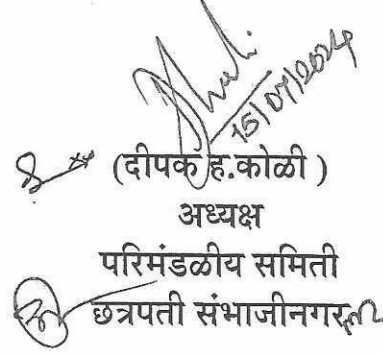 15/07/2024
(दीपक ह.कोळी )
अध्यक्ष
परिमंडळीय समिती
छत्रपती संभाजीनगर